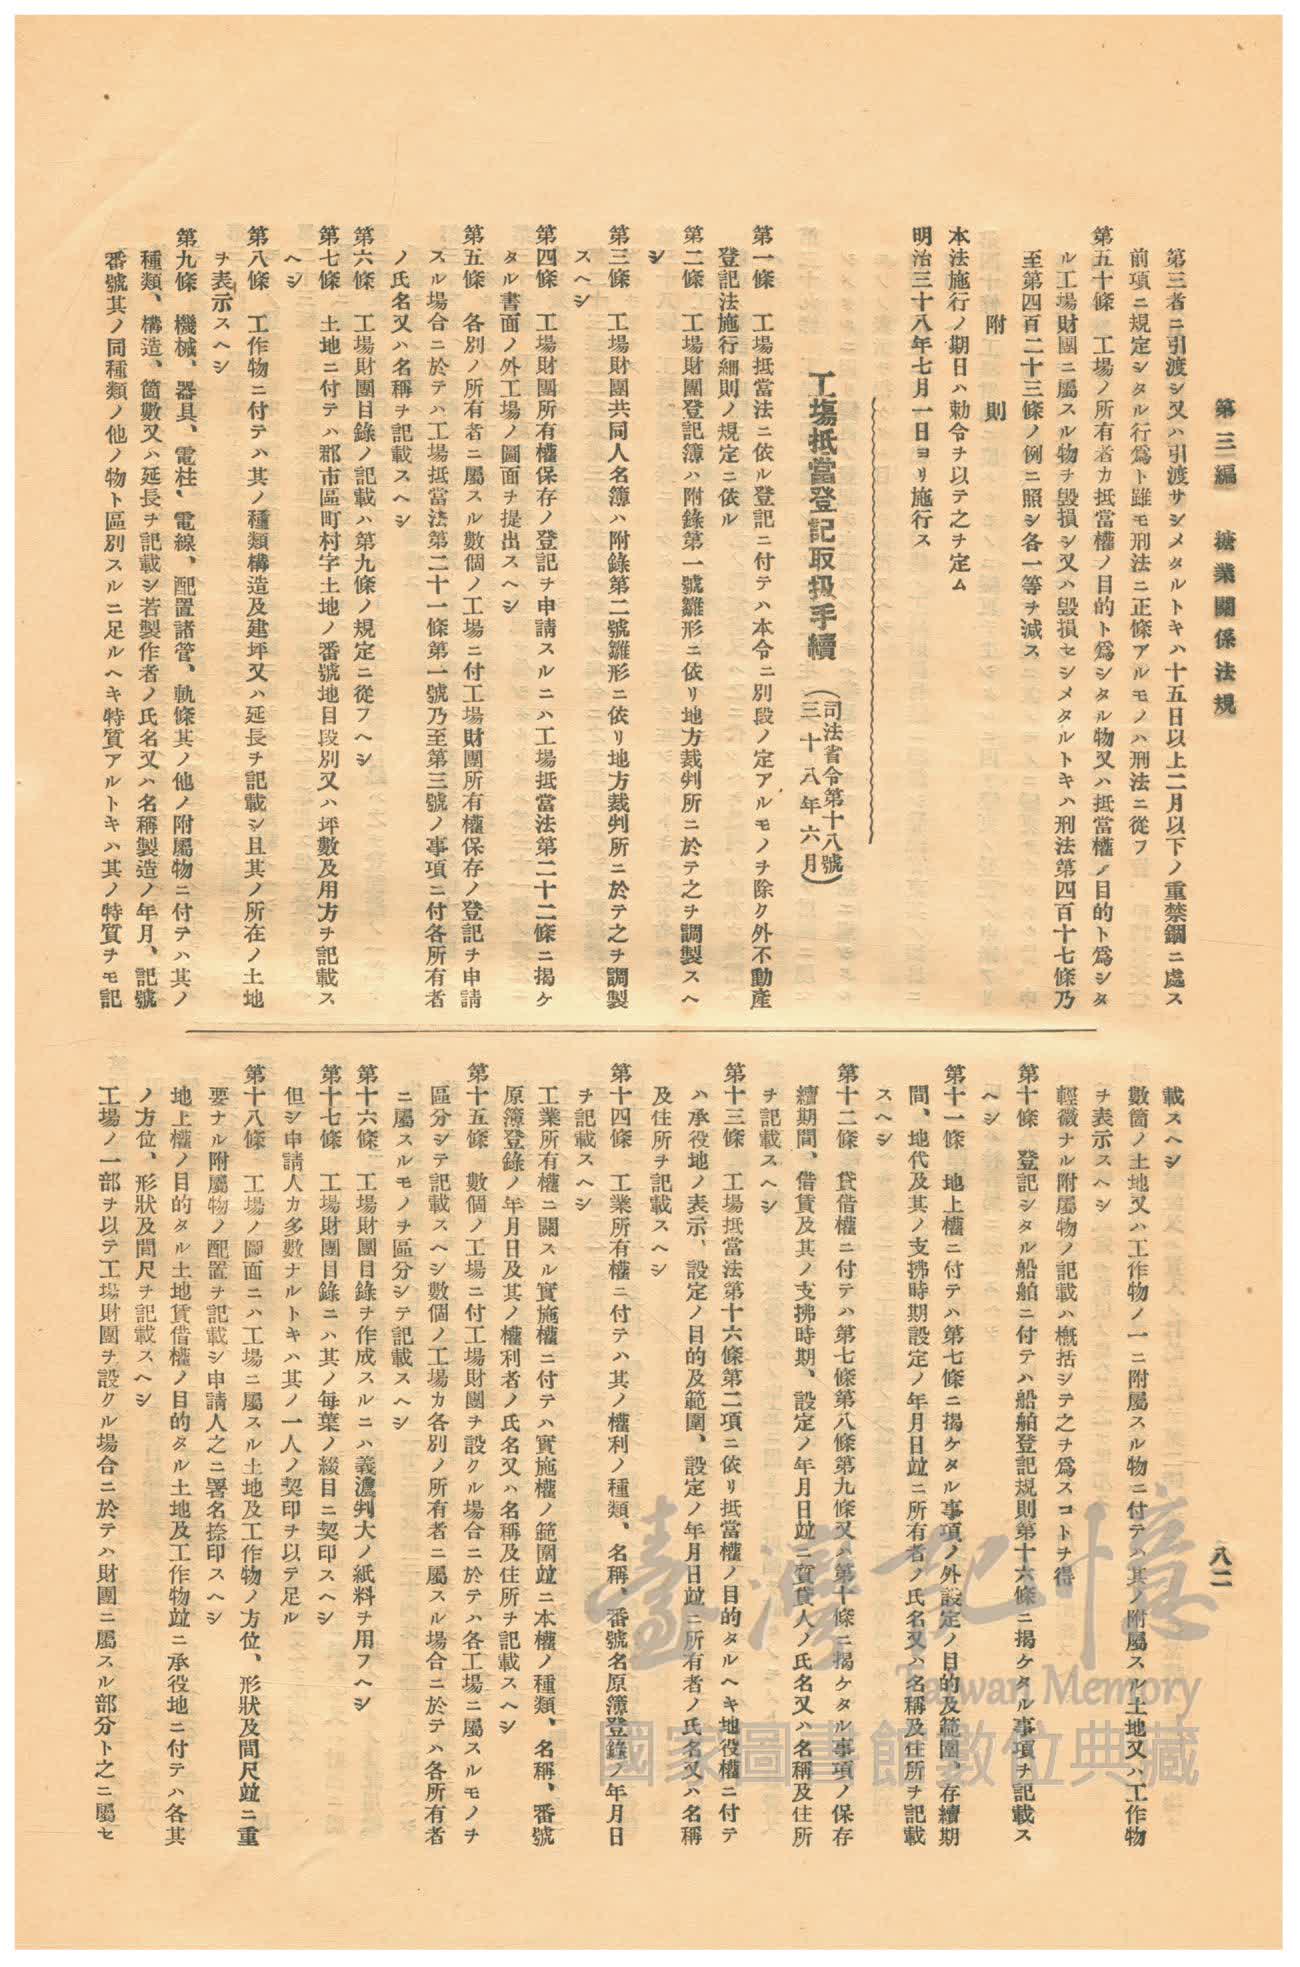 第三編　糖業關係法規
八二
第三者ニ引渡シ又ハ引渡サシメタルトキハ十五日以上二月以下ノ重禁錮ニ處ス
前項ニ規定シタル行爲ト雖モ刑法ニ正條アルモノハ刑法ニ從フ
第五十條　工場ノ所有者カ抵當權ノ目的ト爲シタル物又ハ抵當權ノ目的ト爲シタ
ル工場財團ニ屬スル物ヲ毀損シ又ハ毀損セシメタルトキハ刑法第四百十七條乃
至第四百二十三條ノ例ニ照シ各一等ヲ減ス
附　則
本法施行ノ期日ハ勅令ヲ以テ之ヲ定ム
明治三十八年七月一日ヨリ施行ス
工場抵當登記取扱手續（司法省令第十八號
三十八年六月）
第一條　工場抵當法ニ依ル登記ニ付テハ本令ニ別段ノ定アルモノヲ除ク外不動產
登記法施行細則ノ規定ニ依ル
第二條　工場財團登記簿ハ附錄第一號雛形ニ依リ地方裁判所ニ於テ之ヲ調製スヘ
シ
第三條　工場財團共同人名簿ハ附錄第二號雛形ニ依リ地方裁判所ニ於テ之ヲ調製
スヘシ
第四條　工場財團所有權保存ノ登記ヲ申請スルニハ工場抵當法第二十二條ニ揭ケ
タル書面ノ外工場ノ圖面ヲ提出スヘシ
第五條　各別ノ所有者ニ屬スル數個ノ工場ニ付工場財團所有權保存ノ登記ヲ申請
スル場合ニ於テハ工場抵當法第二十一條第一號乃至第三號ノ事項ニ付各所有者
ノ氏名又ハ名稱ヲ記載スヘシ
第六條　工場財團目錄ノ記載ハ第九條ノ規定ニ從フヘシ
第七條　土地ニ付テハ郡市區町村字土地ノ番號地目段別又ハ坪數及用方ヲ記載ス
ヘシ
第八條　工作物ニ付テハ其ノ種類構造及建坪又ハ延長ヲ記載シ且其ノ所在ノ土地
ヲ表示スヘシ
第九條　機械、器具、電柱、電線、配置諸管、軌條其ノ他ノ附屬物ニ付テハ其ノ
種類、構造、箇數又ハ延長ヲ記載シ若製作者ノ氏名又ハ名稱製造ノ年月、記號
番號其ノ同種類ノ他ノ物ト區別スルニ足ルヘキ特質アルトキハ其ノ特質ヲモ記
載スヘシ
數箇ノ土地又ハ工作物ノ一ニ附屬スル物ニ付テハ其ノ附屬スル土地又ハ工作物
ヲ表示スヘシ
輕微ナル附屬物ノ記載ハ槪括シテ之ヲ爲スコトヲ得
第十條　登記シタル船舶ニ付テハ船舶登記規則第十六條ニ揭ケタル事項ヲ記載ス
ヘシ
第十一條　地上權ニ付テハ第七條ニ揭ケタル事項ノ外設定ノ目的及範圍、存續期
間、地代及其ノ支拂時期設定ノ年月日竝ニ所有者ノ氏名又ハ名稱及住所ヲ記載
スヘシ
第十二條　賃借權ニ付テハ第七條第八條第九條又ハ第十條ニ揭ケタル事項ノ保存
續期間、借賃及其ノ支拂時期、設定ノ年月日竝ニ賃貸人ノ氏名又ハ名稱及住所
ヲ記載スヘシ
第十三條　工場抵當法第十六條第二項ニ依リ抵當權ノ目的タルヘキ地役權ニ付テ
ハ承役地ノ表示、設定ノ目的及範圍、設定ノ年月日竝ニ所有者ノ氏名又ハ名稱
及住所ヲ記載スヘシ
第十四條　工業所有權ニ付テハ其ノ權利ノ種類、名稱、番號名原簿登錄ノ年月日
ヲ記載スヘシ
工業所有權ニ關スル實施權ニ付テハ實施權ノ範圍竝ニ本權ノ種類、名稱、番號
原簿登錄ノ年月日及其ノ權利者ノ氏名又ハ名稱及住所ヲ記載スヘシ
第十五條　數個ノ工場ニ付工場財團ヲ設クル場合ニ於テハ各工場ニ屬スルモノヲ
區分シテ記載スヘシ數個ノ工場カ各別ノ所有者ニ屬スル場合ニ於テハ各所有者
ニ屬スルモノヲ區分シテ記載スヘシ
第十六條　工場財團目錄ヲ作成スルニハ義濃判大ノ紙料ヲ用フヘシ
第十七條　工場財團目錄ニハ其ノ每葉ノ綴目ニ契印スヘシ
但シ申請人カ多數ナルトキハ其ノ一人ノ契印ヲ以テ足ル
第十八條　工場ノ圖面ニハ工場ニ屬スル土地及工作物ノ方位、形狀及間尺竝ニ重
要ナル附屬物ノ配置ヲ記載シ申請人之ニ署名捺印スヘシ
地上權ノ目的タル土地賃借權ノ目的タル土地及工作物竝ニ承役地ニ付テハ各其
ノ方位、形狀及間尺ヲ記載スヘシ
工場ノ一部ヲ以テ工場財團ヲ設クル場合ニ於テハ財團ニ屬スル部分ト之ニ屬セ
臺灣記憶
Taiwan Memory
國家圖書館數位典藏